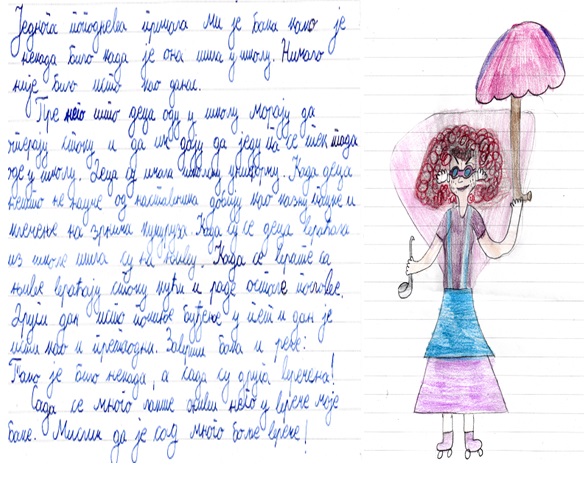 Једнога поподнева причала ми је бака како је
некада било када је она ишла у школу. Ништа
није било исто као данас.
Пре него што деца оду у школу морају да
отерају стоку и да им дају да једу па се тек тада
оде у школу. Деца су имала школску униформу. Када деца
нешто не науче од наставника добију као казну
клечење на зрнима кукуруза. Када су се деца враћала
из школе ишла су на њиву. Када се врате са
њиве враћају стоку кући и раде остале послове.
Други дан исто почиње буђење у пет и дан је
исти као и претходни. Заврши бака и рече:
Тако је било некада, а сада су друга времена!
Сада се много лакше живи него у време моје
баке. Мислим да је сад много боље време!